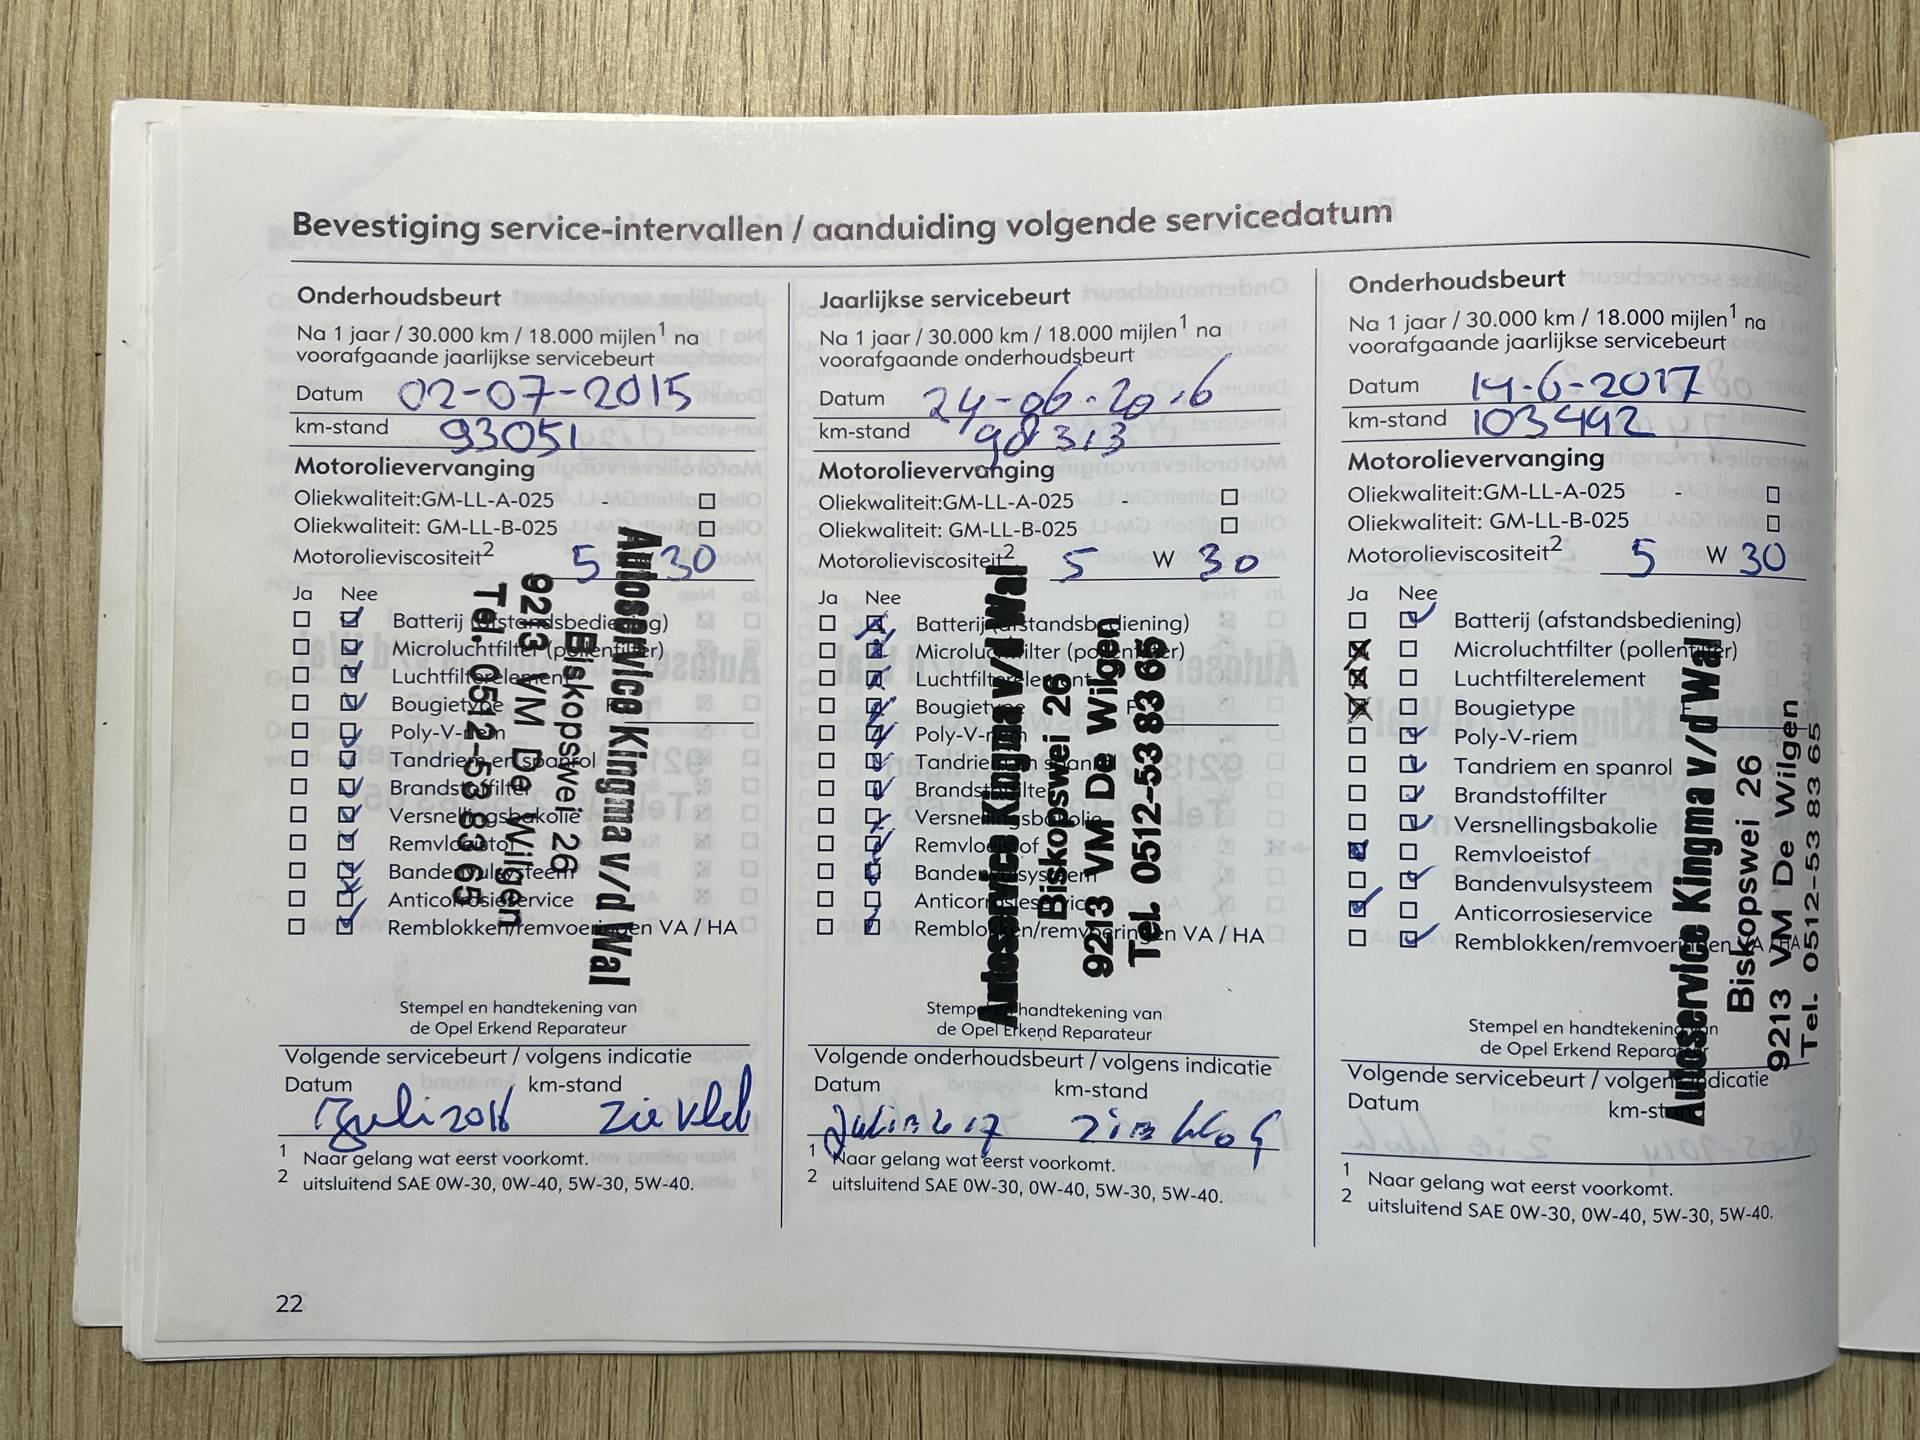 Bevestiging service-intervallen / aanduiding volgende servicedatum
Onderhoudsbeurt
Na 1 jaar / 30.000 km / 18.000 mijlen¹ na
voorafgaande jaarlijkse servicebeurt
Datum 02-07-2015
km-stand 93051
Motorolievervanging
Oliekwaliteit:GM-LL-A-025 -
Oliekwaliteit: GM-LL-B-025
Motorolieviscositeit² 5 30
Ja Nee
Batterij (afstandsbediening)
Microluchtfilter (pollenfilter)
Luchtfilterelement
Bougietype
Poly-V-riem
Tandriem en spanrol
Brandstoffilter
Versnellingsbakolie
Remvloeistof
Bandenvulsysteem
Anticorrosieservice
Remblokken/remvoeringen VA / HA
Autoservice Kingma v/d Wal
Biskopswei 26
9213 VM De Wilgen
Tel. 0512-53 83 65
Stempel en handtekening van
de Opel Erkend Reparateur
Volgende servicebeurt / volgens indicatie
Datum km-stand
Juli 2016 zie
¹ Naar gelang wat eerst voorkomt.
² uitsluitend SAE 0W-30, 0W-40, 5W-30, 5W-40.
Jaarlijkse servicebeurt
Na 1 jaar / 30.000 km / 18.000 mijlen¹ na
voorafgaande onderhoudsbeurt
Datum 24-06-2016
km-stand 98313
Motorolievervanging
Oliekwaliteit:GM-LL-A-025 -
Oliekwaliteit: GM-LL-B-025
Motorolieviscositeit² 5 W 30
Ja Nee
Batterij (afstandsbediening)
Microluchtfilter (pollenfilter)
Luchtfilterelement
Bougietype
Poly-V-riem
Tandriem en spanrol
Brandstoffilter
Versnellingsbakolie
Remvloeistof
Bandenvulsysteem
Anticorrosieservice
Remblokken/remvoeringen VA / HA
Autoservice Kingma v/d Wal
Biskopswei 26
9213 VM De Wilgen
Tel. 0512-53 83 65
Stempel en handtekening van
de Opel Erkend Reparateur
Volgende onderhoudsbeurt / volgens indicatie
Datum km-stand
¹ Naar gelang wat eerst voorkomt.
² uitsluitend SAE 0W-30, 0W-40, 5W-30, 5W-40.
Onderhoudsbeurt
Na 1 jaar / 30.000 km / 18.000 mijlen¹ na
voorafgaande jaarlijkse servicebeurt
Datum 14-6-2017
km-stand 103492
Motorolievervanging
Oliekwaliteit:GM-LL-A-025 -
Oliekwaliteit: GM-LL-B-025
Motorolieviscositeit² 5 W 30
Ja Nee
Batterij (afstandsbediening)
Microluchtfilter (pollenfilter)
Luchtfilterelement
Bougietype
Poly-V-riem
Tandriem en spanrol
Brandstoffilter
Versnellingsbakolie
Remvloeistof
Bandenvulsysteem
Anticorrosieservice
Remblokken/remvoeringen VA / HA
Autoservice Kingma v/d Wal
Biskopswei 26
9213 VM De Wilgen
Tel. 0512-53 83 65
Stempel en handtekening van
de Opel Erkend Reparateur
Volgende servicebeurt / volgens indicatie
Datum km-stand
¹ Naar gelang wat eerst voorkomt.
² uitsluitend SAE 0W-30, 0W-40, 5W-30, 5W-40.
22